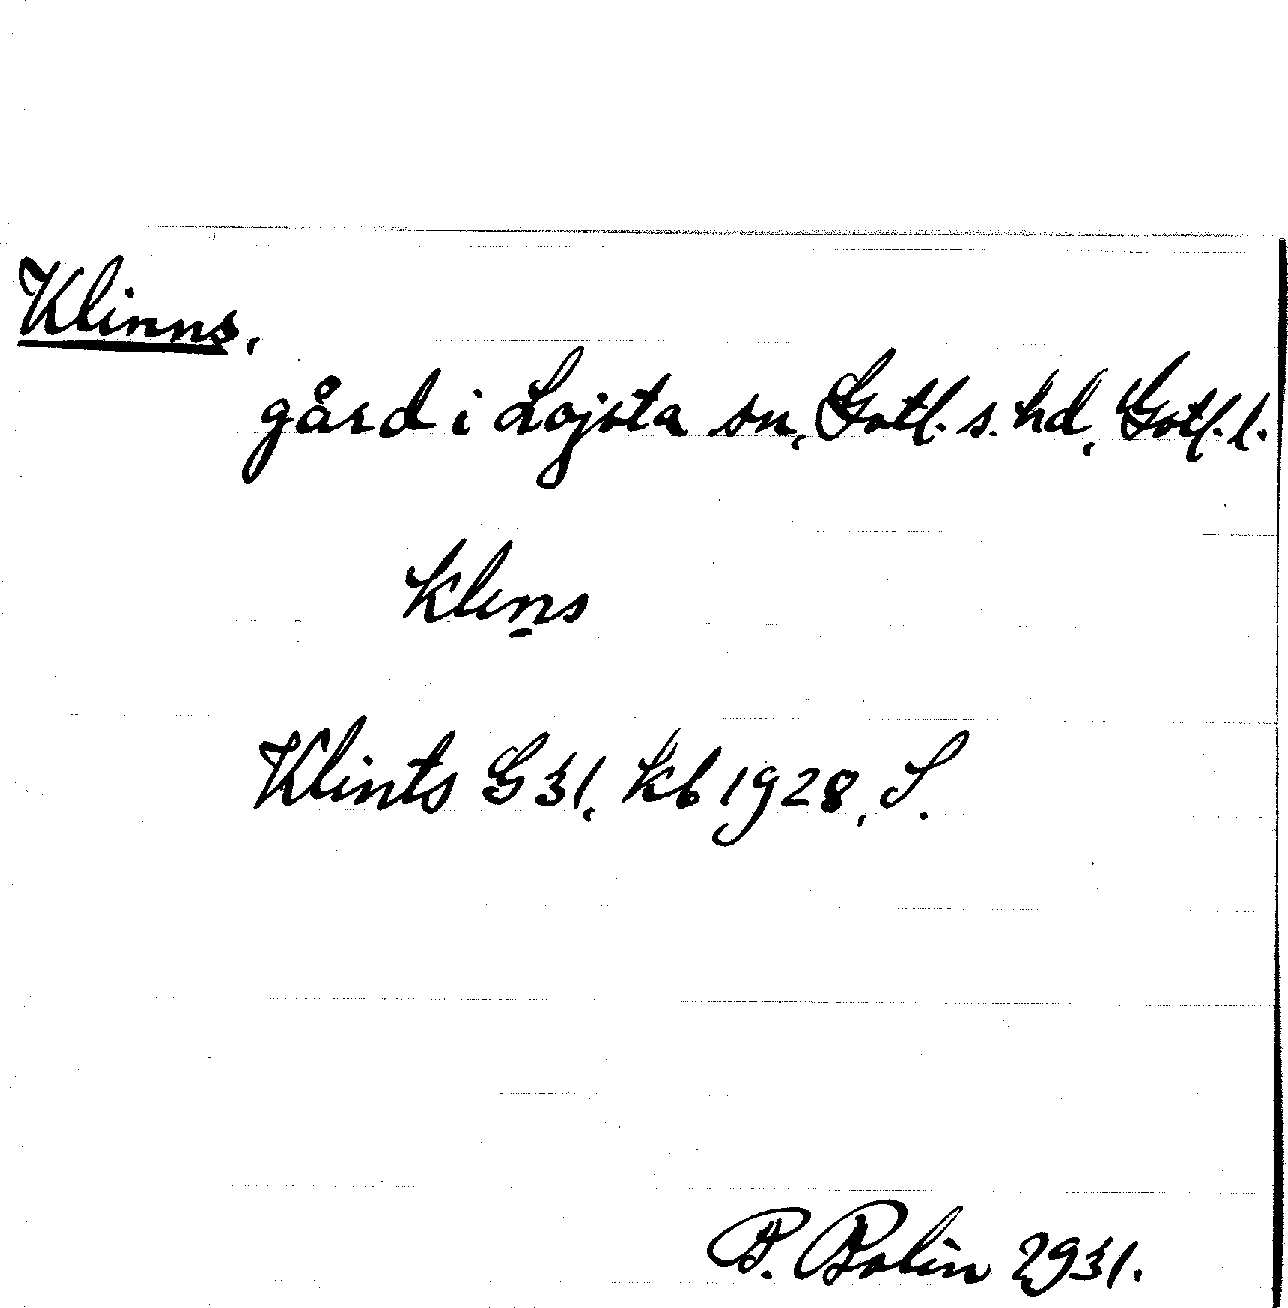 Klinns,
gård i Lojsta sn, Gotl. s. hd, Gotl. l.
klens
Klints G 31, kb 1928, S.
B. Bolin 1931.